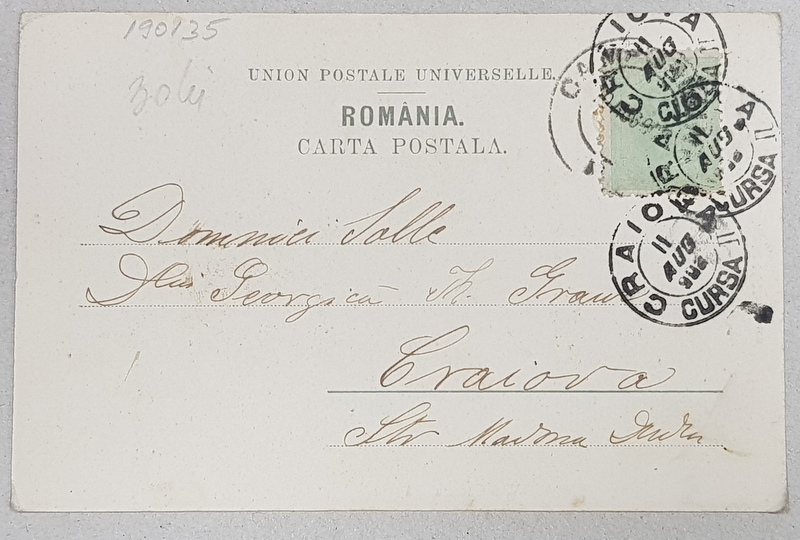 190135
30 lei
UNION POSTALE UNIVERSELLE.
ROMÂNIA.
CARTA POSTALA.
CRAIOVA
11
AUG
CURSA II
CRAIOVA
11
AUG
906
CURSA II
Domniei Sale
Georgică Th.
Craiova
Str Madona